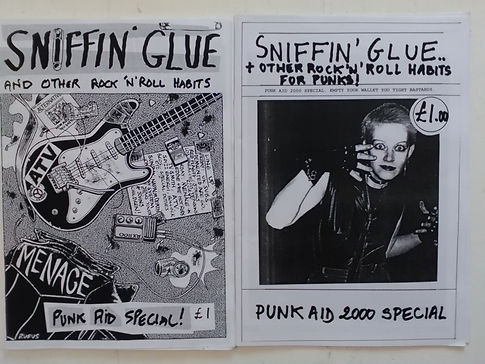 SNIFFIN' GLUE
AND OTHER ROCK 'N' ROLL HABITS
ATV
MENACE
PUNK AID SPECIAL! £1
RUFUS
SNIFFIN' GLUE..
+ OTHER ROCK 'N' ROLL HABITS
FOR PUNKS!
PUNK AID 2000 SPECIAL. EMPTY YOUR WALLET YOU TIGHT BASTARDS
£1.00
PUNK AID 2000 SPECIAL